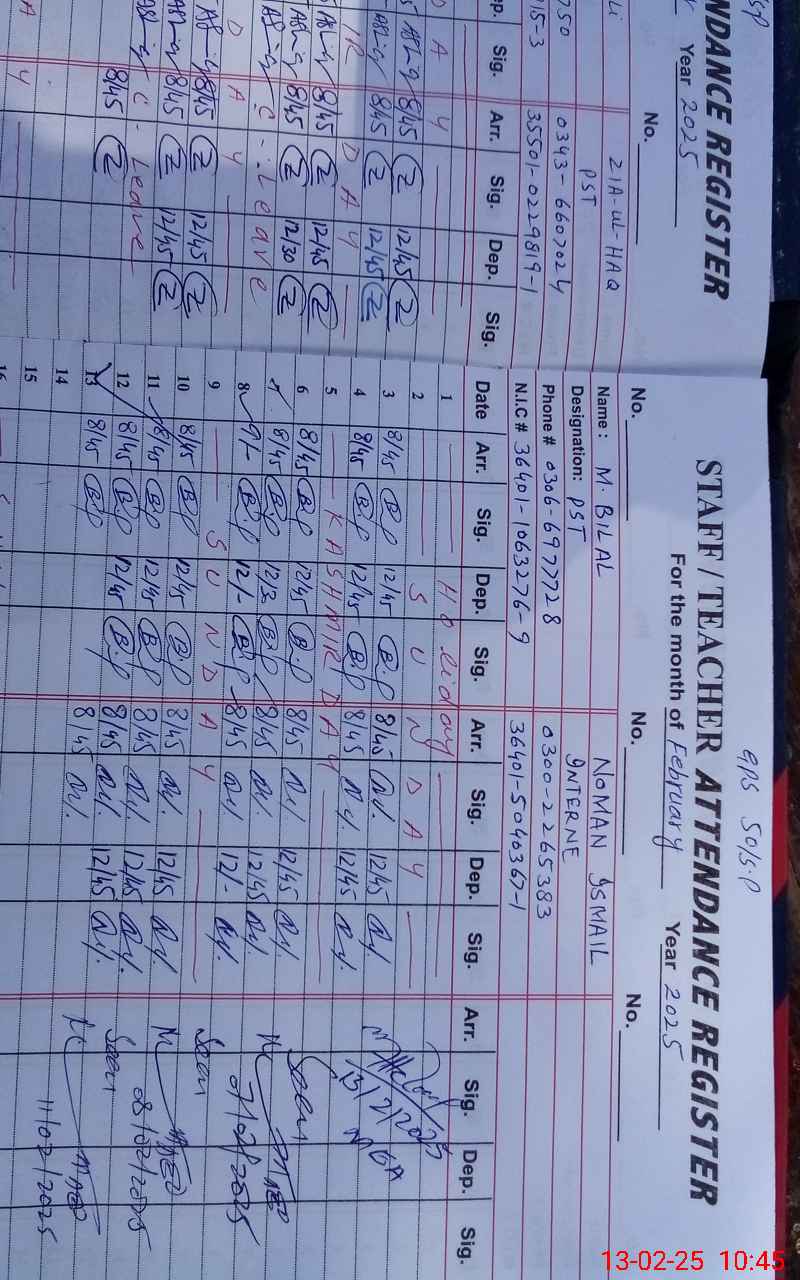 NDANCE REGISTER
Year 2025
No.
ZIA-UL-HAQ
PST
0343-6607024
35501-0229819-1
Sig. Arr. Sig. Dep. Sig.
8/45 12/45
8/45 12/45
8/45 12/45
8/45 12/30
C-Leave
8/45 12/45
8/45 12/45
C-Leave
8/45
GPS 50/S.P
STAFF / TEACHER ATTENDANCE REGISTER
For the month of February Year 2025
No. No. No.
Name: M. BILAL NOMAN ISMAIL
Designation: PST INTERNE
Phone # 0306-6977728 0300-2265383
N.I.C # 36401-1063276-9 36401-5040367-1
Date Arr. Sig. Dep. Sig. Arr. Sig. Dep. Sig. Arr. Sig. Dep. Sig.
1 Holiday
2 SUNDAY
3 8/45 B.P 12/45 B.P 8/45 12/45
4 8/45 B.P 12/45 B.P 8/45 12/45
5 KASHMIR DAY
6 8/45 B.P 12/45 B.P 8/45 12/45
7 8/45 B.P 12/30 B.P 8/45 12/45
8 9/- B.P 12/- B.P 8/45 12/-
9 SUNDAY
10 8/45 B.P 12/45 B.P 8/45 12/45
11 8/45 B.P 12/45 B.P 8/45 12/45
12 8/45 B.P 12/45 B.P 8/45 12/45
13 8/45 B.P 8/45 12/45
14
15
16
Seen
07/02/2025
Seen
08/02/2025
Seen
11/02/2025
13-02-25 10:45